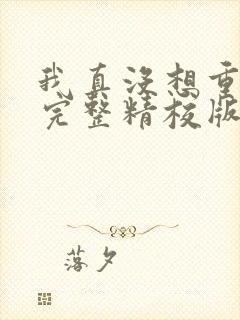 我真没想重
完整精校版
落夕